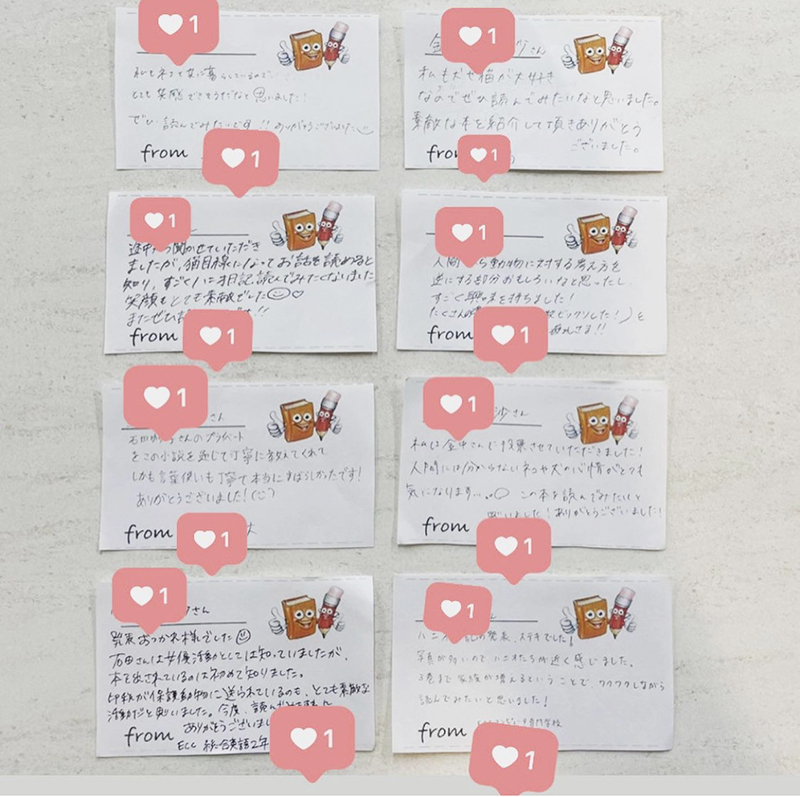 1
1
私もネコと共に暮らしているので、
とても共感できそうだなと思いました!
ぜひ読んでみたいです!!ありがとうございました
from
1
金 さん
私も犬や猫が大好き
なのでぜひ読んでみたいなと思いました。
素敵な本を紹介して頂きありがとう
ございました。
from
1
1
途中から聞かせていただき
ましたが、猫目線になってお話を読めると
知り、すごくハニオ日記読んでみたくなりました
笑顔もとても素敵でした
またぜひ !!
from
1
1
人間 ら動物に対する考え方を
逆にする部分おもしろいなと思ったし、
すごく興味を持ちました!
たくさんの ビックリした!)と
さま!!
from
1
1
さん
石田ゆり子さんのプライベート
をこの小説を通じて丁寧に教えてくれて
しかも言葉使いも丁寧で本当にすばらしかったです!
ありがとうございました!
from
1
1
沙さん
私は金中さんに投票させていただきました!
人間には分からないネコや犬の心情がとても
気になります...。この本を読んでみたいと
思いました!ありがとうございました!
from
1
1
さん
発表おつかれ様でした
石田さんは女優活動としては知っていましたが、
本を出されているのは初めて知りました。
印税が保護動物に送られているのも、とても素敵な
活動だと思いました。今度、読んで
ありがとうございまし
from
ECC 総合英語2年
1
1
ハニオ日記の発表、ステキでした!
写真が多いのでハニオたちが近く感じました。
3巻まで家族が増えるということで、ワクワクしながら
読んでみたいと思いました!
from
専門学校
1